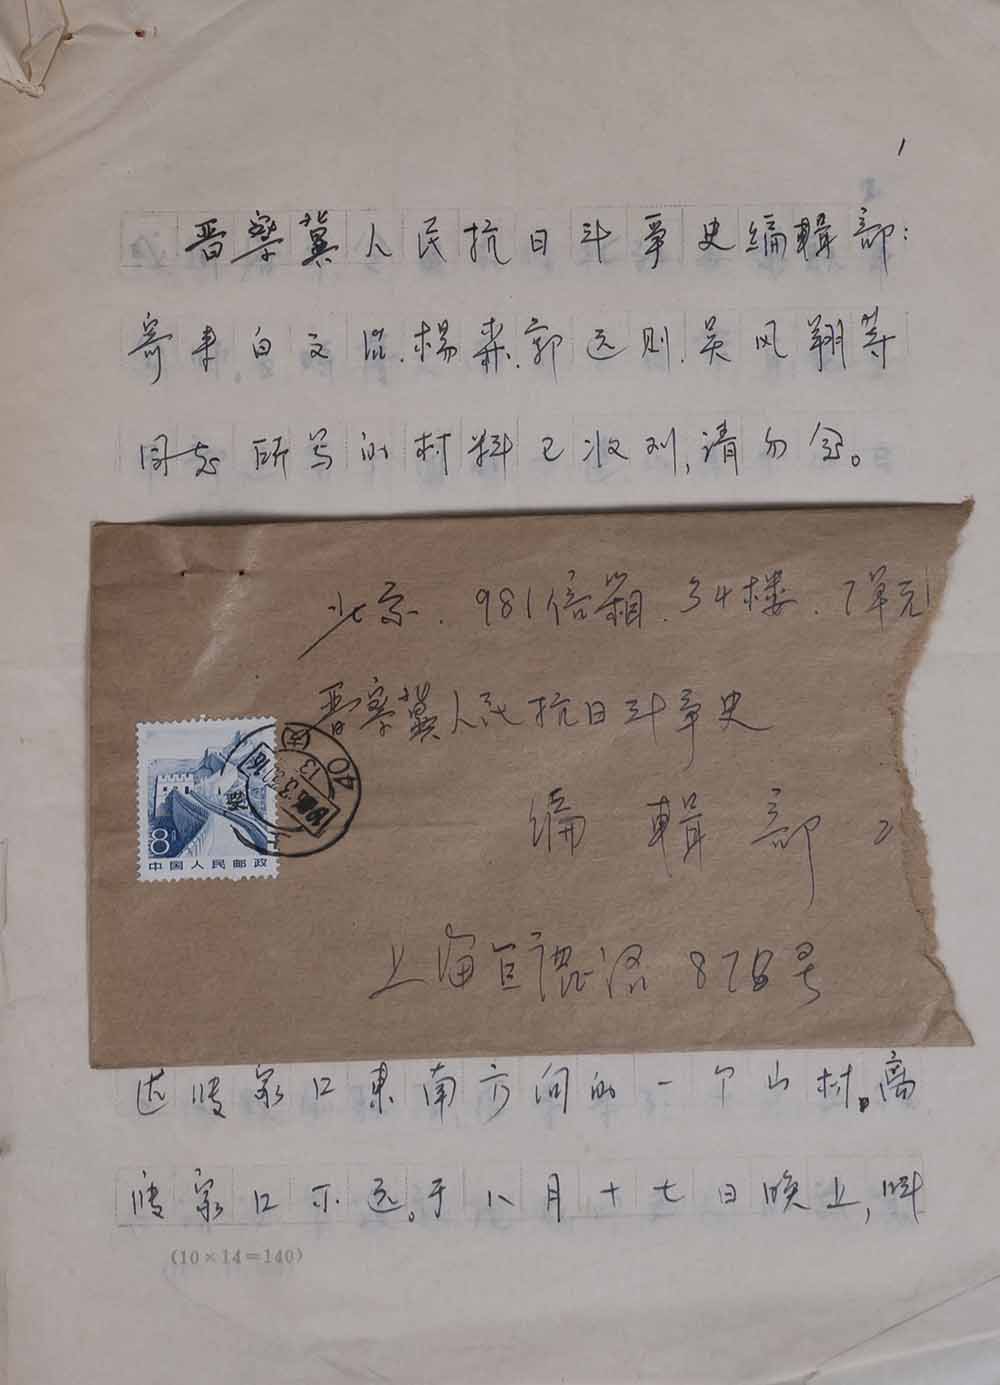 1
晋察冀人民抗日斗争史编辑部：
寄来白文、杨森、郭远则、吴风翔等
同志所写的材料已收到，请勿念。
北京.981信箱.34楼.7单元
晋察冀人民抗日斗争史
编辑部
上海巨鹿路878号
8
中国人民邮政
40
13
达张家口东南方向的一个山村。离
张家口不远。于八月十七日晚上，
(10×14=140)